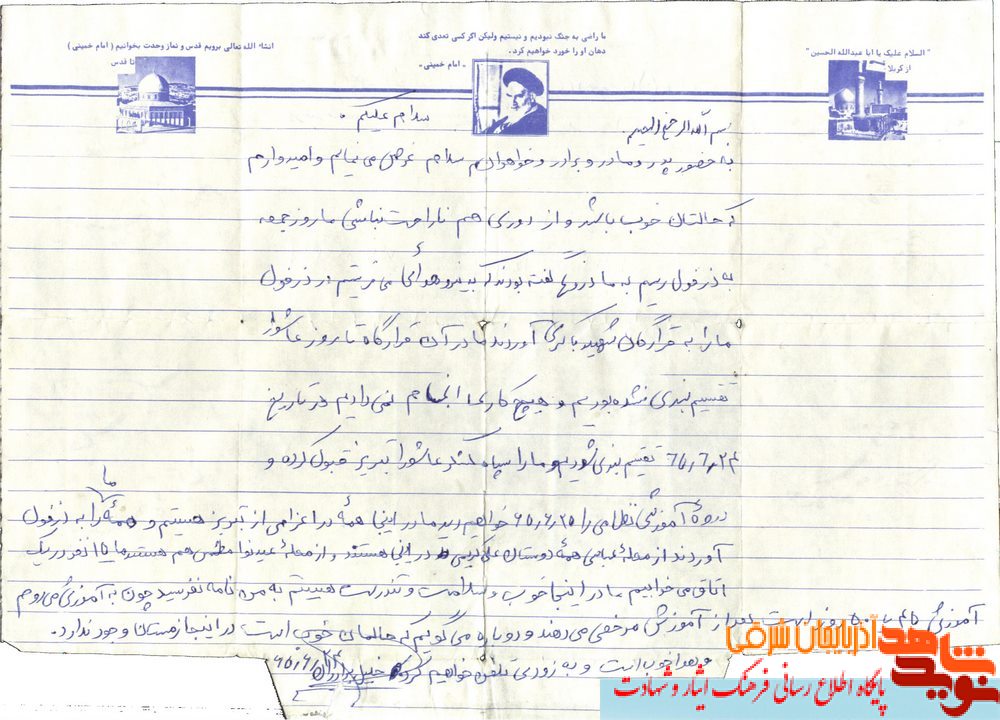 انشاء الله تعالی برویم قدس و نماز وحدت بخوانیم ( امام خمینی )
تا قدس
ما راضی به جنگ نبودیم و نیستیم ولیکن اگر کسی تعدی کند
دهان او را خورد خواهیم کرد.
- امام خمینی -
"السلام علیک یا ابا عبدالله الحسین"
از کربلا
بسم الله الرحمن الرحیم
سلام علیکم .
به حضور پدر و مادر و برادر و خواهرانم سلام عرض می نمایم و امیدوارم
که حالتان خوب باشد و از دوری هم ناراحت نباشی ما روز جمعه
به دزفول رسیم به ما گفته بودند که به نیرو هوائی می فرستیم در دزفول
ما را به قرارگاه شهید باکری آوردند ما در آن قرارگاه تا روز عاشورا
تقسیم بندی نشده بودیم و هیچ کاری انجام نمی دادیم در تاریخ
65,6,24 تقسیم بندی شدیم و ما را سپاه لشکر عاشورا تبریز قبول کرده و
دورهٔ آموزشی نظامی را 65,6,25 خواهیم دید ما در اینجا همهٔ در اعزامی از تبریز هستیم و همهٔ ما را به دزفول
آوردند از محلهٔ عباسی همهٔ دوستان در اینجا هستند و از محلهٔ هم هستند ما 15 نفر در یک
اتاق می خوابیم ما در اینجا خوب و سلامت و تندرست هستیم به من نامه نفرسید چون به آموزشی می روم
آموزشی 45 تا 50 روز است بعد از آموزش مرخصی می دهند و دوباره می گویم که حالمان خوب است در اینجا زمستان وجود ندارد.
و هوا خوب است و به زودی تلفن خواهیم کرد خلیل 65,6,24
نوید شاهد آذربایجان شرقی
پایگاه اطلاع رسانی فرهنگ ایثار و شهادت